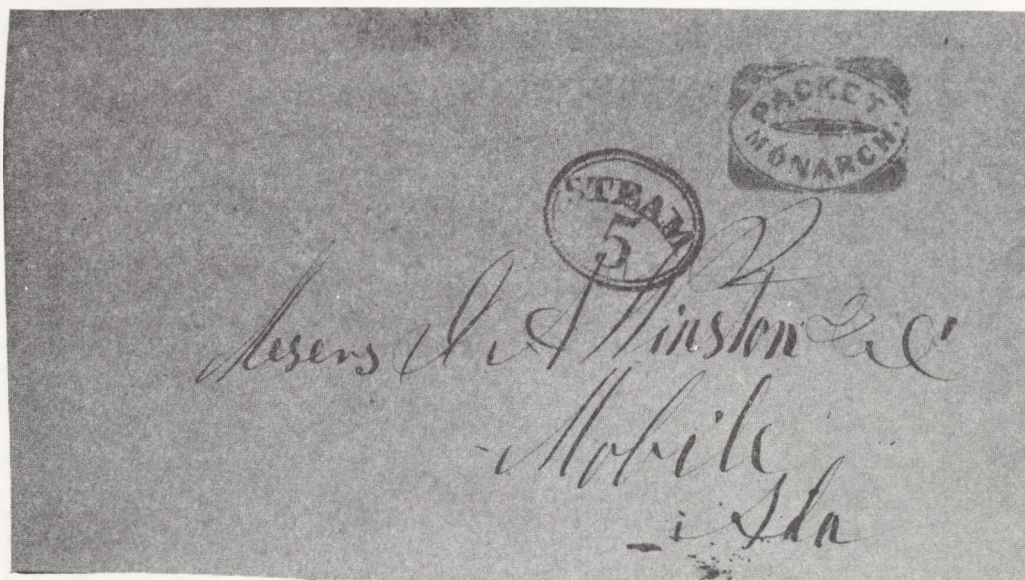 PACKET
MONARCH.
STEAM
5
Messrs J A Winston & Co
Mobile
Ala